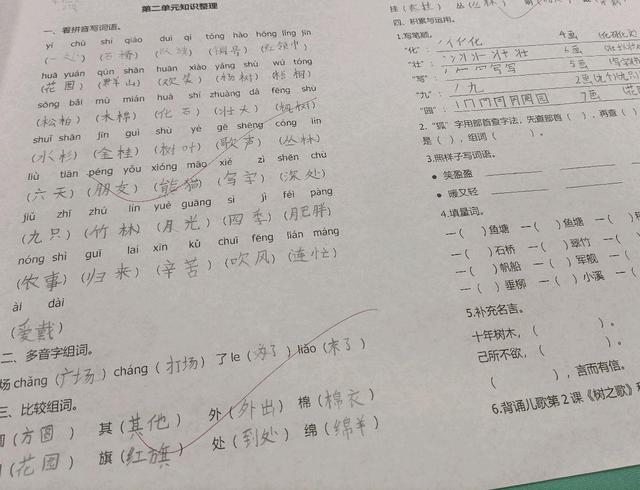 第二单元知识整理
一、看拼音写词语。
yí chù shí qiáo duì qí tóng hào hóng lǐng jīn
(一处) (石桥) (队旗) (铜号) (红领巾)
huā yuán qún shān huān xiào yáng shù wú tóng
(花园) (群山) (欢笑) (杨树) (梧桐)
sōng bǎi mù mián huà shí zhuàng dà fēng shù
(松柏) (木棉) (化石) (壮大) (枫树)
shuǐ shān jīn guì shù yè gē shēng cóng lín
(水杉) (金桂) (树叶) (歌声) (丛林)
liù tiān péng yǒu xióng māo xiě zì shēn chù
(六天) (朋友) (熊猫) (写字) (深处)
jiǔ zhī zhú lín yuè guāng sì jì féi pàng
(九只) (竹林) (月光) (四季) (肥胖)
nóng shì guī lai xīn kǔ chuī fēng lián máng
(农事) (归来) (辛苦) (吹风) (连忙)
ài dài
(爱戴)
二、多音字组词。
场chǎng (广场) cháng (打场) 了le ( ) liǎo ( )
三、比较组词。
(方圆) 其(其他) 外(外出) 棉(棉衣)
(花园) 旗(红旗) 处(到处) 绵(绵羊)
四、积累与运用。
1.写笔顺。
"化": 化 4画
"壮": 壮 6画
"写": 写 5画
"九": 九 2画
"四": 7画
2."狐"字用部首查字法,先查部首( ),再查(
是( ),组词( )。
3.照样子写词语。
● 笑盈盈
● 暖又轻
4.填量词。
一( )鱼塘 一( )鱼塘 一(
一( )石桥 一( )翠竹 一(
一( )帆船 一( )军舰 一(
一( )垂柳 一( )小溪 一(
5.补充名言。
十年树木,( )。
己所不欲,( )。
( ),言而有信。
6.背诵儿歌第2课《树之歌》